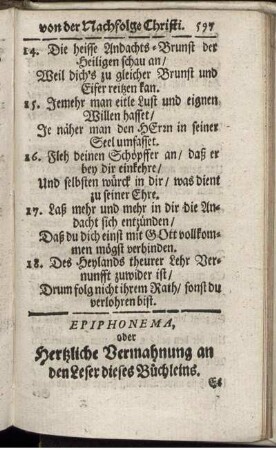 von der Nachfolge Christi. 597
14. Die heisse Andachts-Brunst der
Heiligen schau an/
Weil dich's zu gleicher Brunst und
Eifer reitzen kan.
15. Jemehr man eitle Lust und eignen
Willen hasset/
Je näher man den HErrn in seiner
Seel umfasset.
16. Fleh deinen Schöpffer an/ daß er
bey dir einkehre/
Und selbsten würck in dir/ was dient
zu seiner Ehre.
17. Laß mehr und mehr in dir die An-
dacht sich entzünden/
Daß du dich einst mit GOtt vollkom-
men mögst verbinden.
18. Des Heylands theurer Lehr Ver-
nunfft zuwider ist/
Drum folg nicht ihrem Rath/ sonst du
verlohren bist.
EPIPHONEMA,
oder
Hertzliche Vermahnung an
den Leser dieses Büchleins.
Es